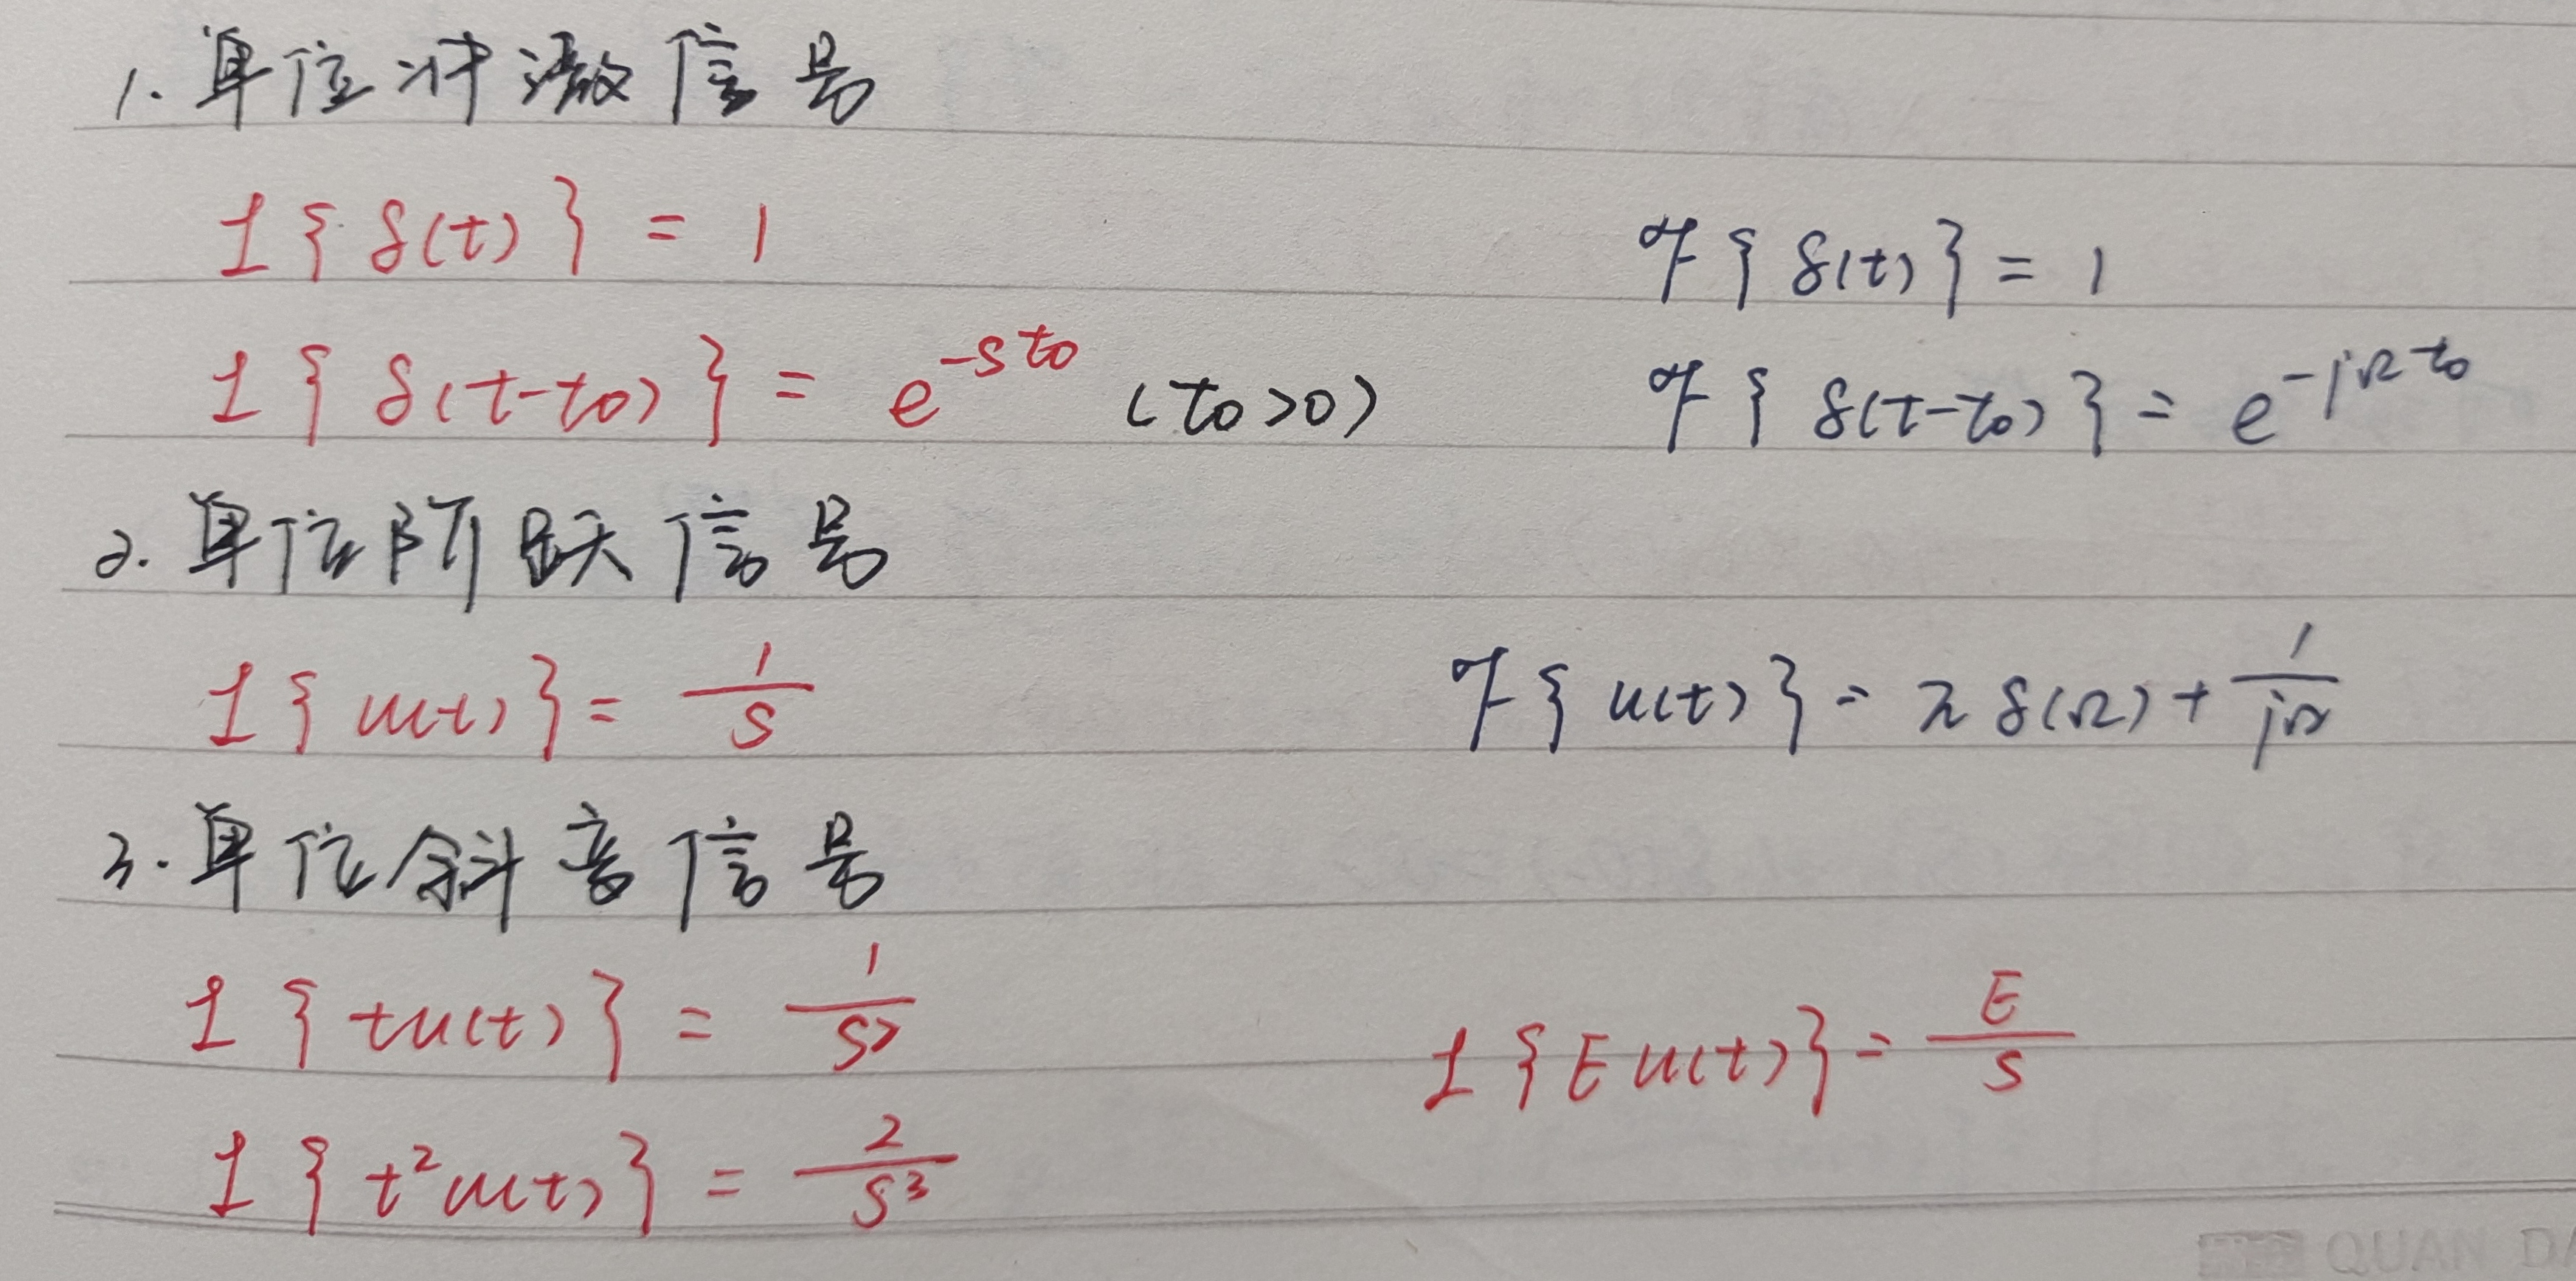 1. 单位冲激信号
ℒ{δ(t)} = 1
ℱ{δ(t)} = 1
ℒ{δ(t-t₀)} = e^{-st₀} (t₀>0)
ℱ{δ(t-t₀)} = e^{-jΩt₀}
2. 单位阶跃信号
ℒ{u(t)} = 1/s
ℱ{u(t)} = πδ(Ω) + 1/jΩ
3. 单位斜变信号
ℒ{tu(t)} = 1/s²
ℒ{Eu(t)} = E/s
ℒ{t²u(t)} = 2/s³
QUAN DA